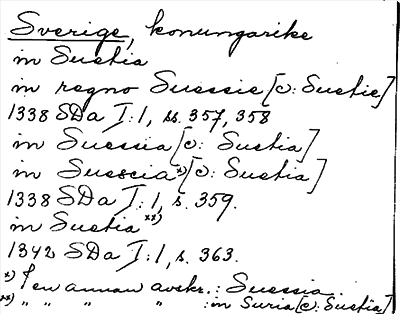 Sverige, konungarike
in Suetia
in regno Suessie [ɔ: Suetie]
1338 SDa I:1, ss. 357, 358
in Suessia [ɔ: Suetia]
in Suescia*) [ɔ: Suetia]
1338 SDa I:1, s. 359.
in Suetia **)
1342 SDa I:1, s. 363.
*) I en annan avskr.: Suessia.
**) " " " " : in Suria [ɔ: Suetia]